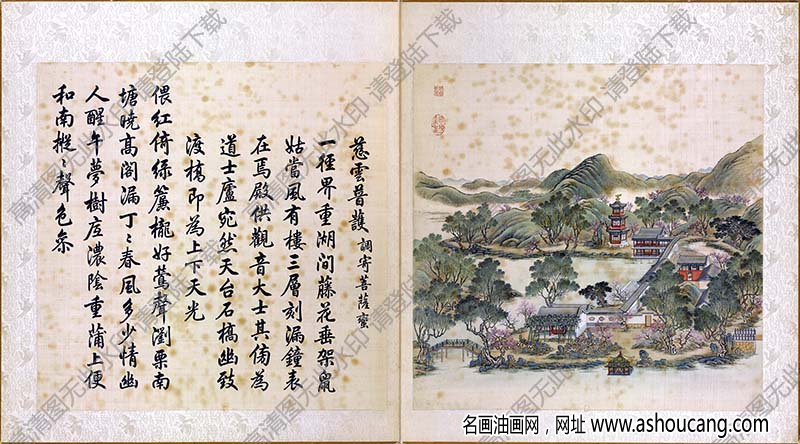 慈雲普護 調寄菩薩蠻
一徑界重湖間藤花垂架鼠
姑當風有樓三層刻漏鐘表
在焉殿供觀音大士其傍為
道士廬宛然天台石橋幽致
渡橋即為上下天光
偎紅倚綠簾櫳好鶯聲瀏栗南
塘曉高閣漏丁〻春風多少情幽
人醒午夢樹底濃陰重蒲上便
和南摐〻聲色參
高清图无此水印 请登陆下载
名画油画网，网址 www.ashoucang.com